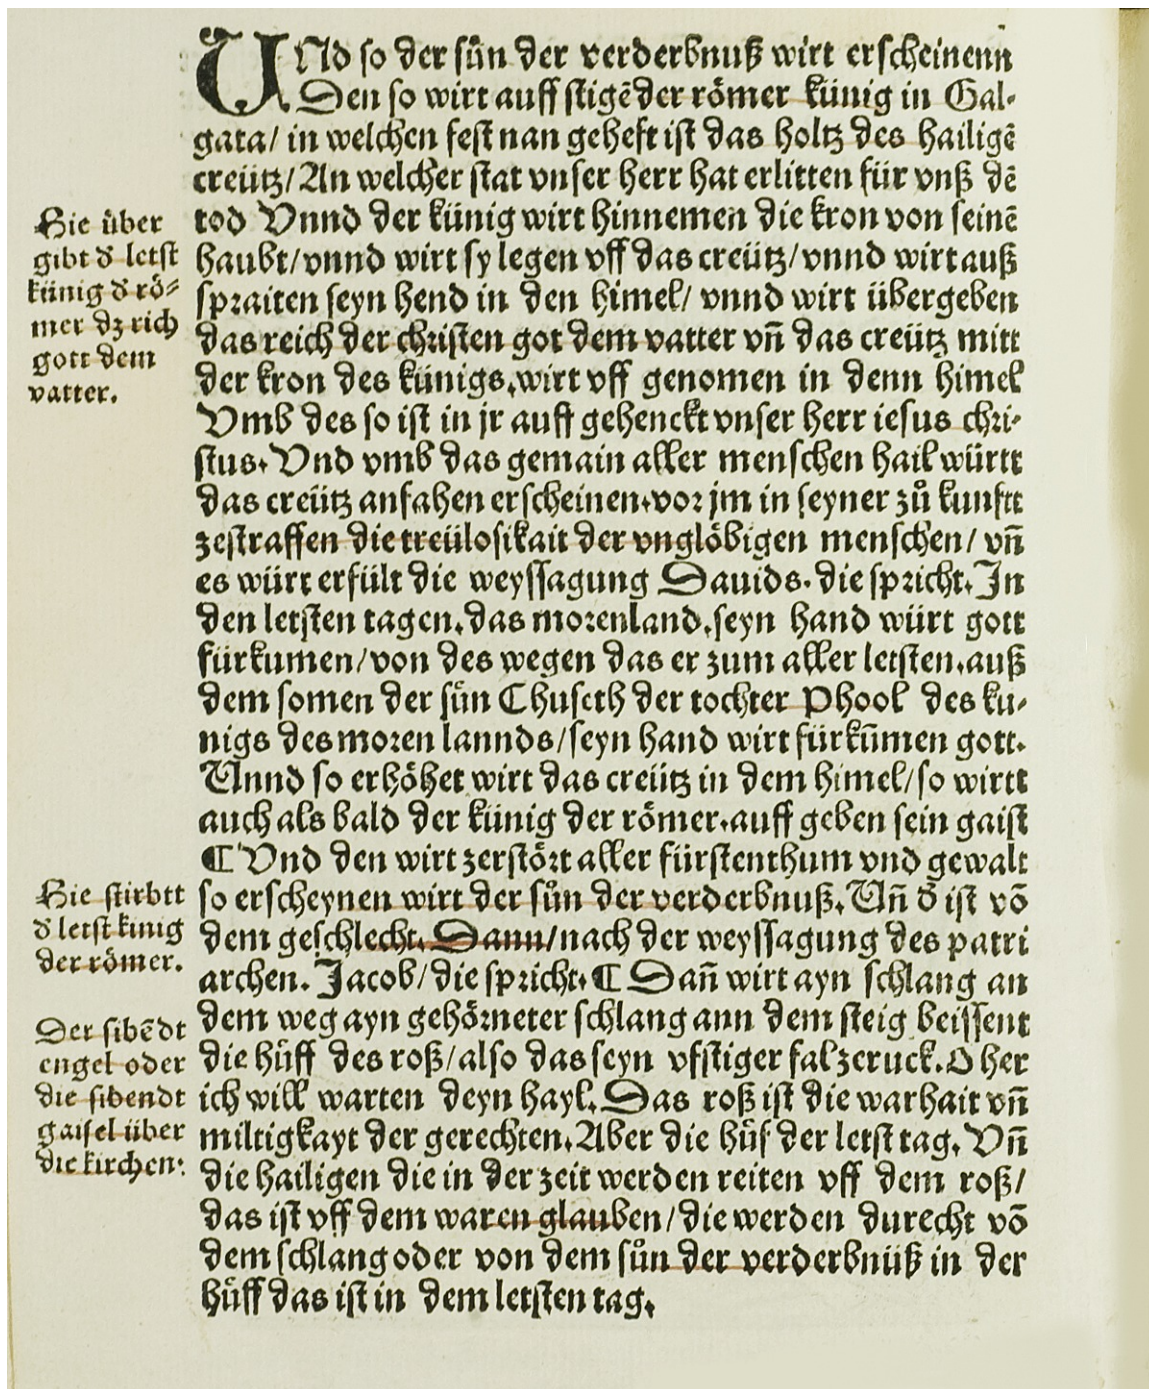 UNd so der sůn der verderbnuß wirt erscheinenn
Den so wirt auff stigē der römer künig in Gal-
gata/ in welchen fest nan geheft ist das holtz des hailigē
creütz/ An welcher stat vnser herr hat erlitten für vnß dē
tod Vnnd der künig wirt hinnemen die kron von seinē
haubt/ vnnd wirt sy legen vff das creütz/ vnnd wirt auß
spraiten seyn hend in den himel/ vnnd wirt übergeben
das reich der christen got dem vatter vn̄ das creütz mitt
der kron des künigs. wirt vff genomen in denn himel
Vmb des so ist in jr auff gehenckt vnser herr iesus chri-
stus. Vnd vmb das gemain aller menschen hail württ
das creütz anfahen erscheinen. vor jm in seyner zů kunftt
zestraffen die treülosikait der vnglöbigen menschen/ vn̄
es würt erfült die weyssagung Dauids. die spricht. In
den letsten tagen. das morenland. seyn hand würt gott
fürkumen/ von des wegen das er zum aller letsten. auß
dem somen der sůn Chuseth der tochter Phool des ku-
nigs des moren lannds/ seyn hand wirt fürkūmen gott.
Vnnd so erhöhet wirt das creütz in dem himel/ so wirtt
auch als bald der künig der römer. auff geben sein gaist
¶ Vnd den wirt zerstört aller fürstenthum vnd gewalt
so erscheynen wirt der sůn der verderbnuß. Vn̄ d' ist vō
dem geschlecht. Dann/ nach der weyssagung des patri
archen. Jacob/ die spricht. ¶ Dan̄ wirt ayn schlang an
dem weg ayn gehörneter schlang ann dem steig beissent
die hüff des roß/ also das seyn vfstiger fal zeruck. O her
ich will warten deyn hayl. Das roß ist die warhait vn̄
miltigkayt der gerechten. Aber die hüf der letst tag. Vn̄
die hailigen die in der zeit werden reiten vff dem roß/
das ist vff dem waren glauben/ die werden durecht vō
dem schlang oder von dem sůn der verderbnüß in der
hüff das ist in dem letsten tag.
Hie über
gibt d' letst
künig d' rö-
mer dz rich
gott dem
vatter.
Hie stirbtt
d' letst kinig
der römer.
Der sibēdt
engel oder
die sibendt
gaisel über
die kirchen: